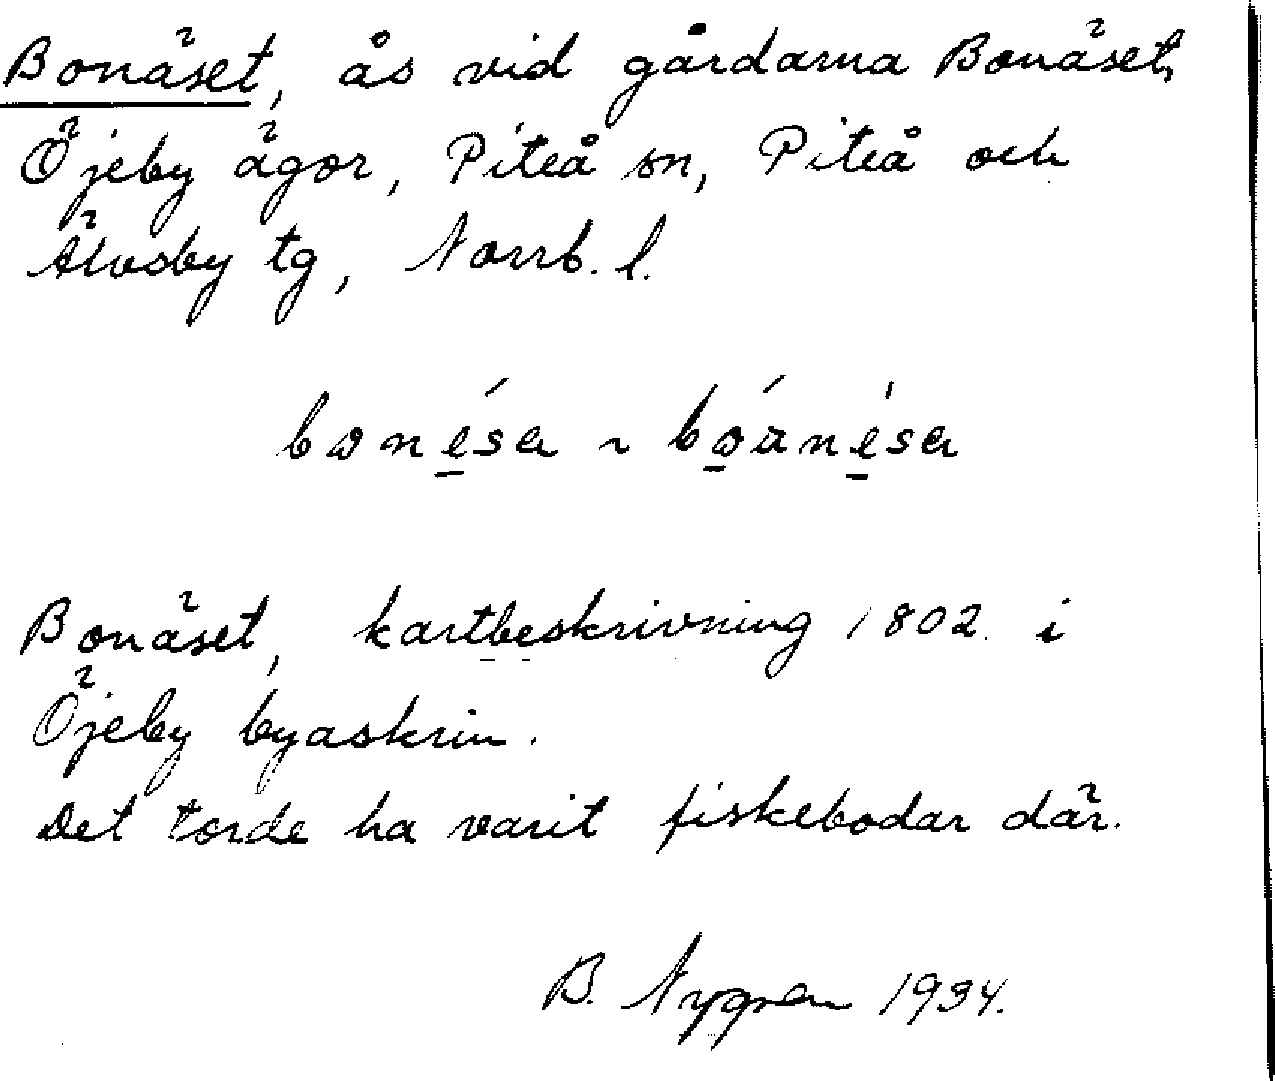 Bonäset, ås vid gårdarna Bonäset,
Öjeby ägor, Piteå sn, Piteå och
Älvsby tg, Norrb. l.
Bonäset, kartbeskrivning 1802 i
Öjeby byaskrin.
Det torde ha varit fiskebodar där.
B. Nygren 1934.